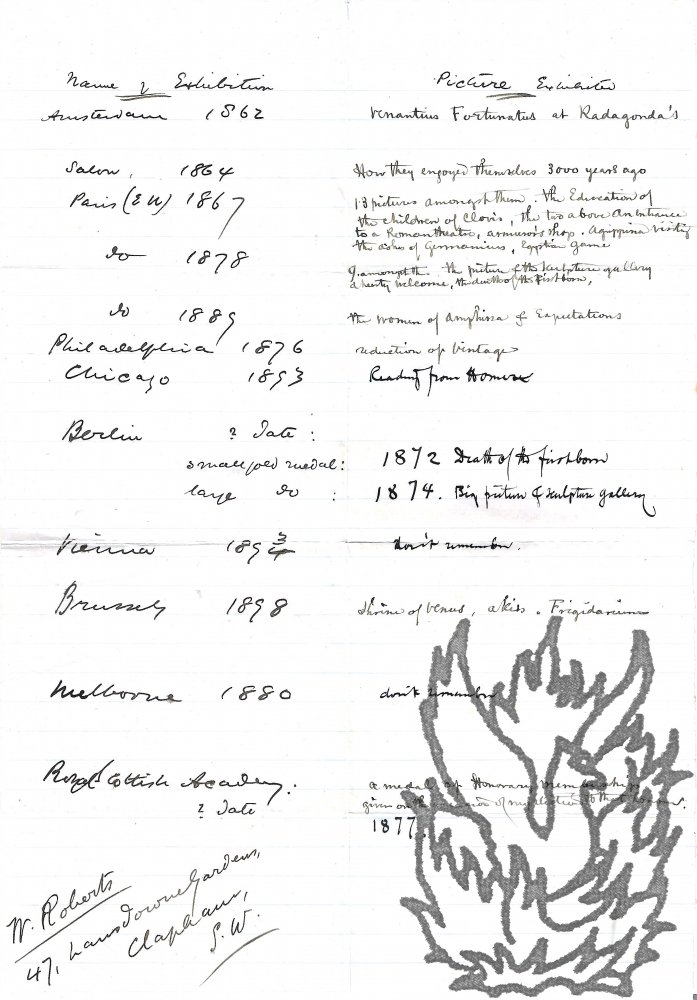 Name of Exhibition Picture Exhibited
Amsterdam 1862 Venantius Fortunatus at Radagonda's
Salon, 1864 How they engoyed themselves 3000 years ago
Paris (E U) 1867 13 pictures amongst them. The Education of
the children of Clovis, the two above an entrance
to a Roman theatre, armurors shop. Agrippina visiting
the ashes of Germanicus, Egyptian game
do 1878 9 amongst th. the picture & the sculpture gallery
a hearty welcome, the death of the firstborn,
do 1889 the women of Amphissa & Expectations
Philadelphia 1876 reduction of Vintage
Chicago 1893 Reading from Homer
Berlin ? Date:
small gold medal: 1872 Death of the firstborn
large do: 1874. Big picture & sculpture gallery
Vienna 189 don't remember.
Brussels 1898 Shrine of Venus, a kiss. Frigidarium
Melbourne 1880 don't remember
Royal Scottish Academy: a medal of Honorary membership
? Date given on the occasion of
1877
W. Roberts
47, Lansdowne Gardens,
Clapham,
S.W.